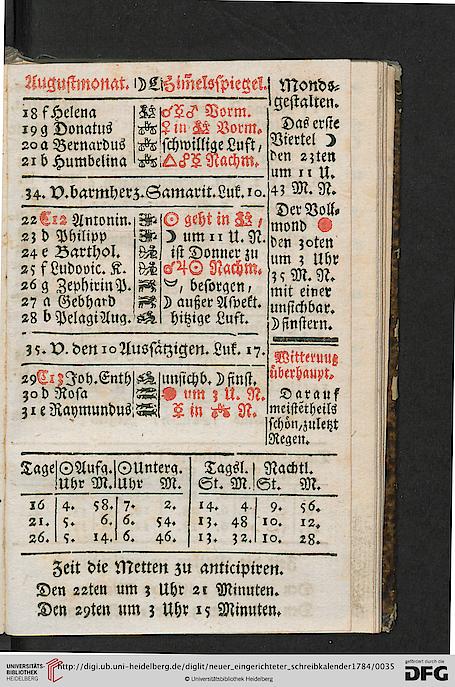 Augustmonat. ☽ C Him̃elsspiegel.
18 f Helena ☌☿♂ Vorm.
19 g Donatus ♀ in Vorm.
20 a Bernardus schwillige Luft,
21 b Humbelina △♂☿ Nachm.
34. V. barmherz. Samarit. Luk. 10.
22 C12 Antonin. ☉ geht in ,
23 d Philipp ☽ um 11 U. N.
24 e Barthol. ist Donner zu
25 f Ludovic. K. ☌♃☉ Nachm.
26 g Zephirin P. , besorgen,
27 a Gebhard ☽ außer Aspekt.
28 b Pelagi Aug. hitzige Luft.
35. V. den 10 Aussätzigen. Luk. 17.
29 C13 Joh. Enth unsichb. ☽ finst.
30 d Rosa um 3 U. N.
31 e Raymundus ☿ in ♎ N.
Monds-
gestalten.
Das erste
Viertel ☽
den 23ten
um 11 U.
43 M. N.
Der Voll-
mond
den 30ten
um 3 Uhr
35 M. N.
mit einer
unsichbar.
☽ finstern.
Witterung
überhaupt.
Darauf
meistetheils
schön, zuletzt
Regen.
Tage ☉ Aufg. ☉ Unterg. Tagsl. Nachtl.
Uhr M. Uhr M. St. M. St. M.
16 4. 58. 7. 2. 14. 4. 9. 56.
21. 5. 6. 6. 54. 13. 48 10. 12.
26. 5. 14. 6. 46. 13. 32. 10. 28.
Zeit die Metten zu anticipiren.
Den 22ten um 3 Uhr 21 Minuten.
Den 29ten um 3 Uhr 15 Minuten.
UNIVERSITÄTS-
BIBLIOTHEK
HEIDELBERG
http://digi.ub.uni-heidelberg.de/diglit/neuer_eingerichteter_schreibkalender1784/0035
© Universitätsbibliothek Heidelberg
gefördert durch die
DFG